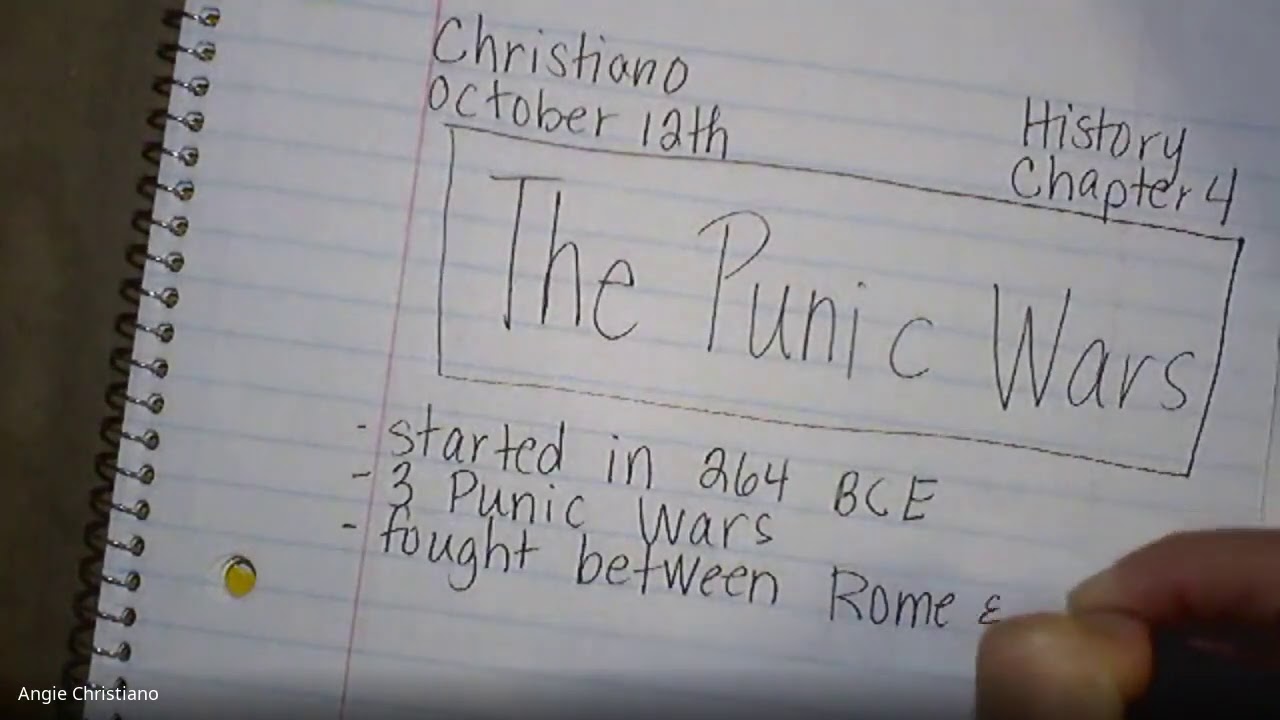 Christiano
October 12th
History
Chapter 4
The Punic Wars
- started in 264 BCE
- 3 Punic Wars
- fought between Rome &
Angie Christiano